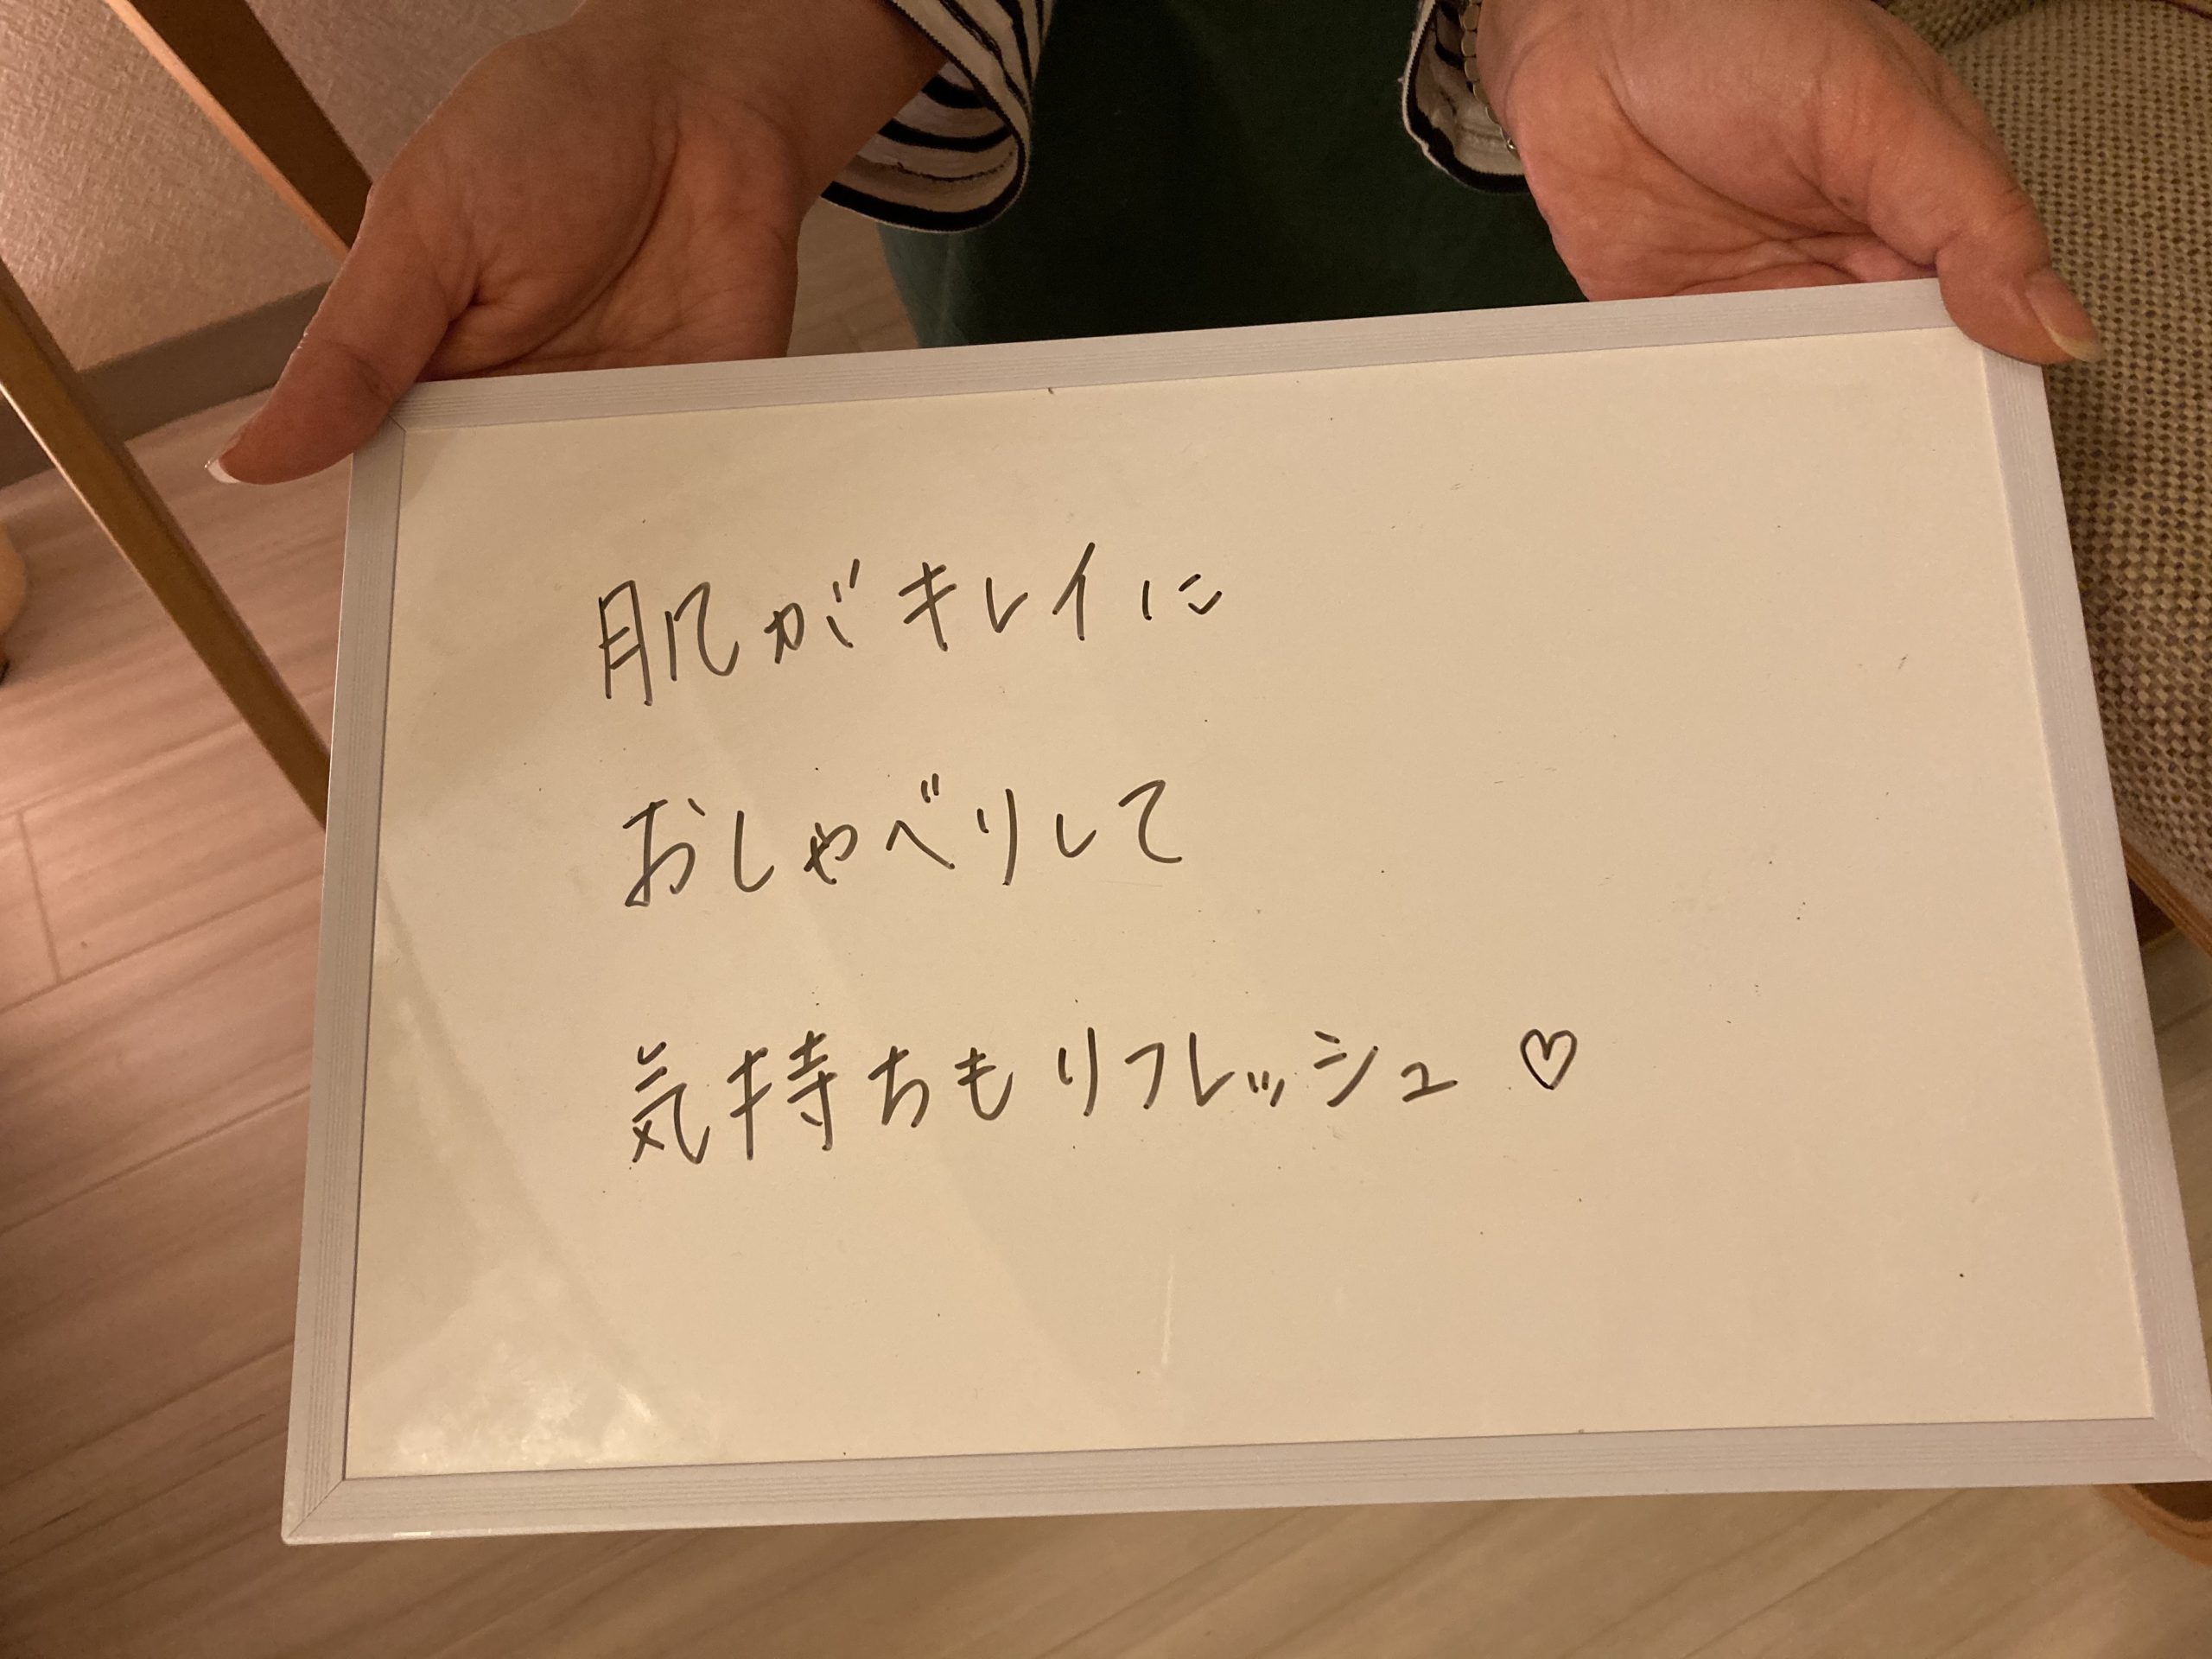 肌がキレイに
おしゃべりして
気持ちもリフレッシュ♡